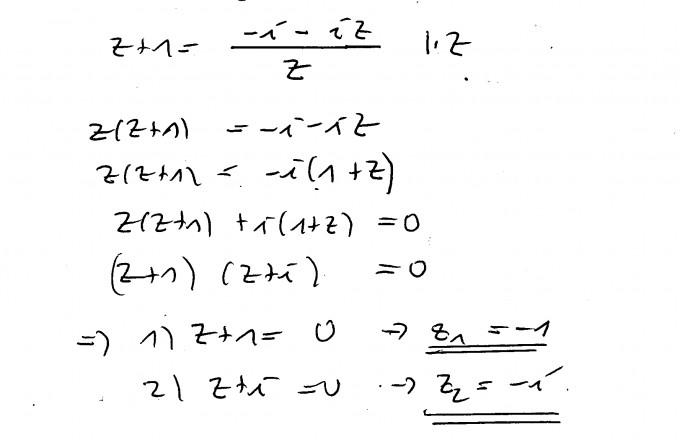 z+1 = (-i - iz)/z |·z
z(z+1) = -i-iz
z(z+1) = -i(1+z)
z(z+1) + i(1+z) = 0
(z+1) (z+i) = 0
=> 1) z+1 = 0 → z₁ = -1
2) z+i = 0 → z₂ = -i